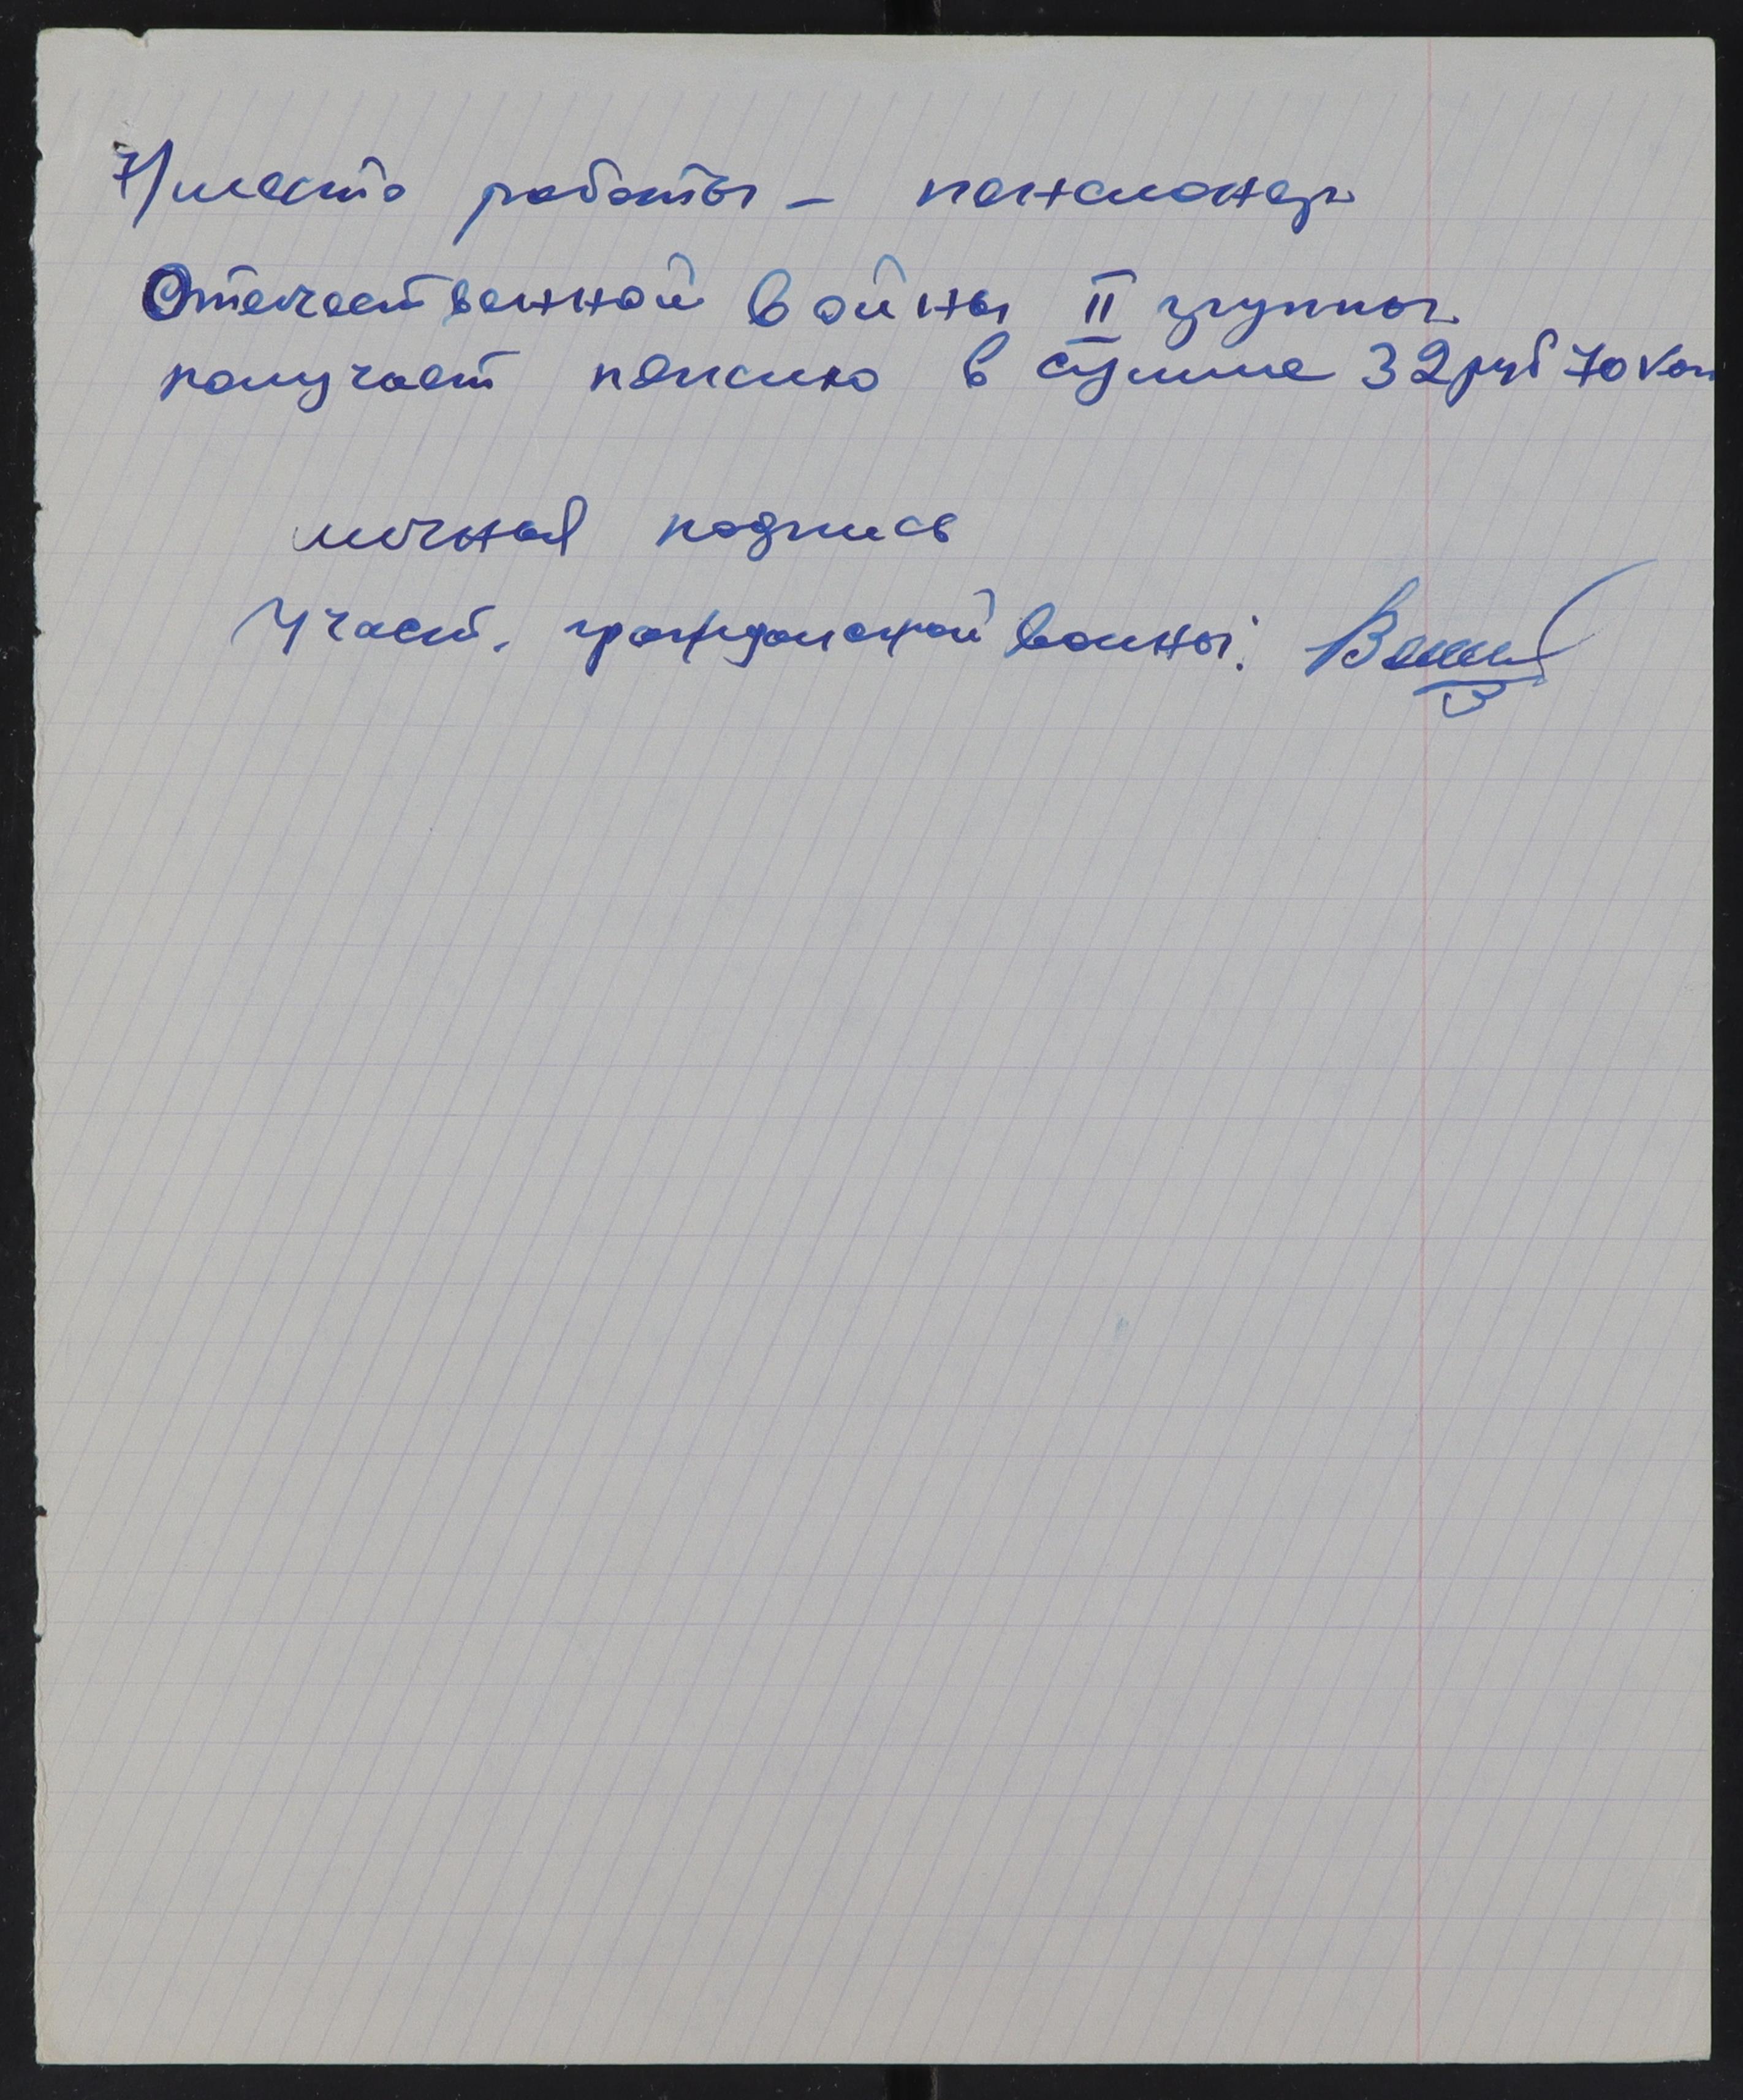 7) место работы - пенсионер
Отечественной войны II группы
получает пенсию в сумме 32 руб 70 коп
личная подпись
Участ. гражданской войны: